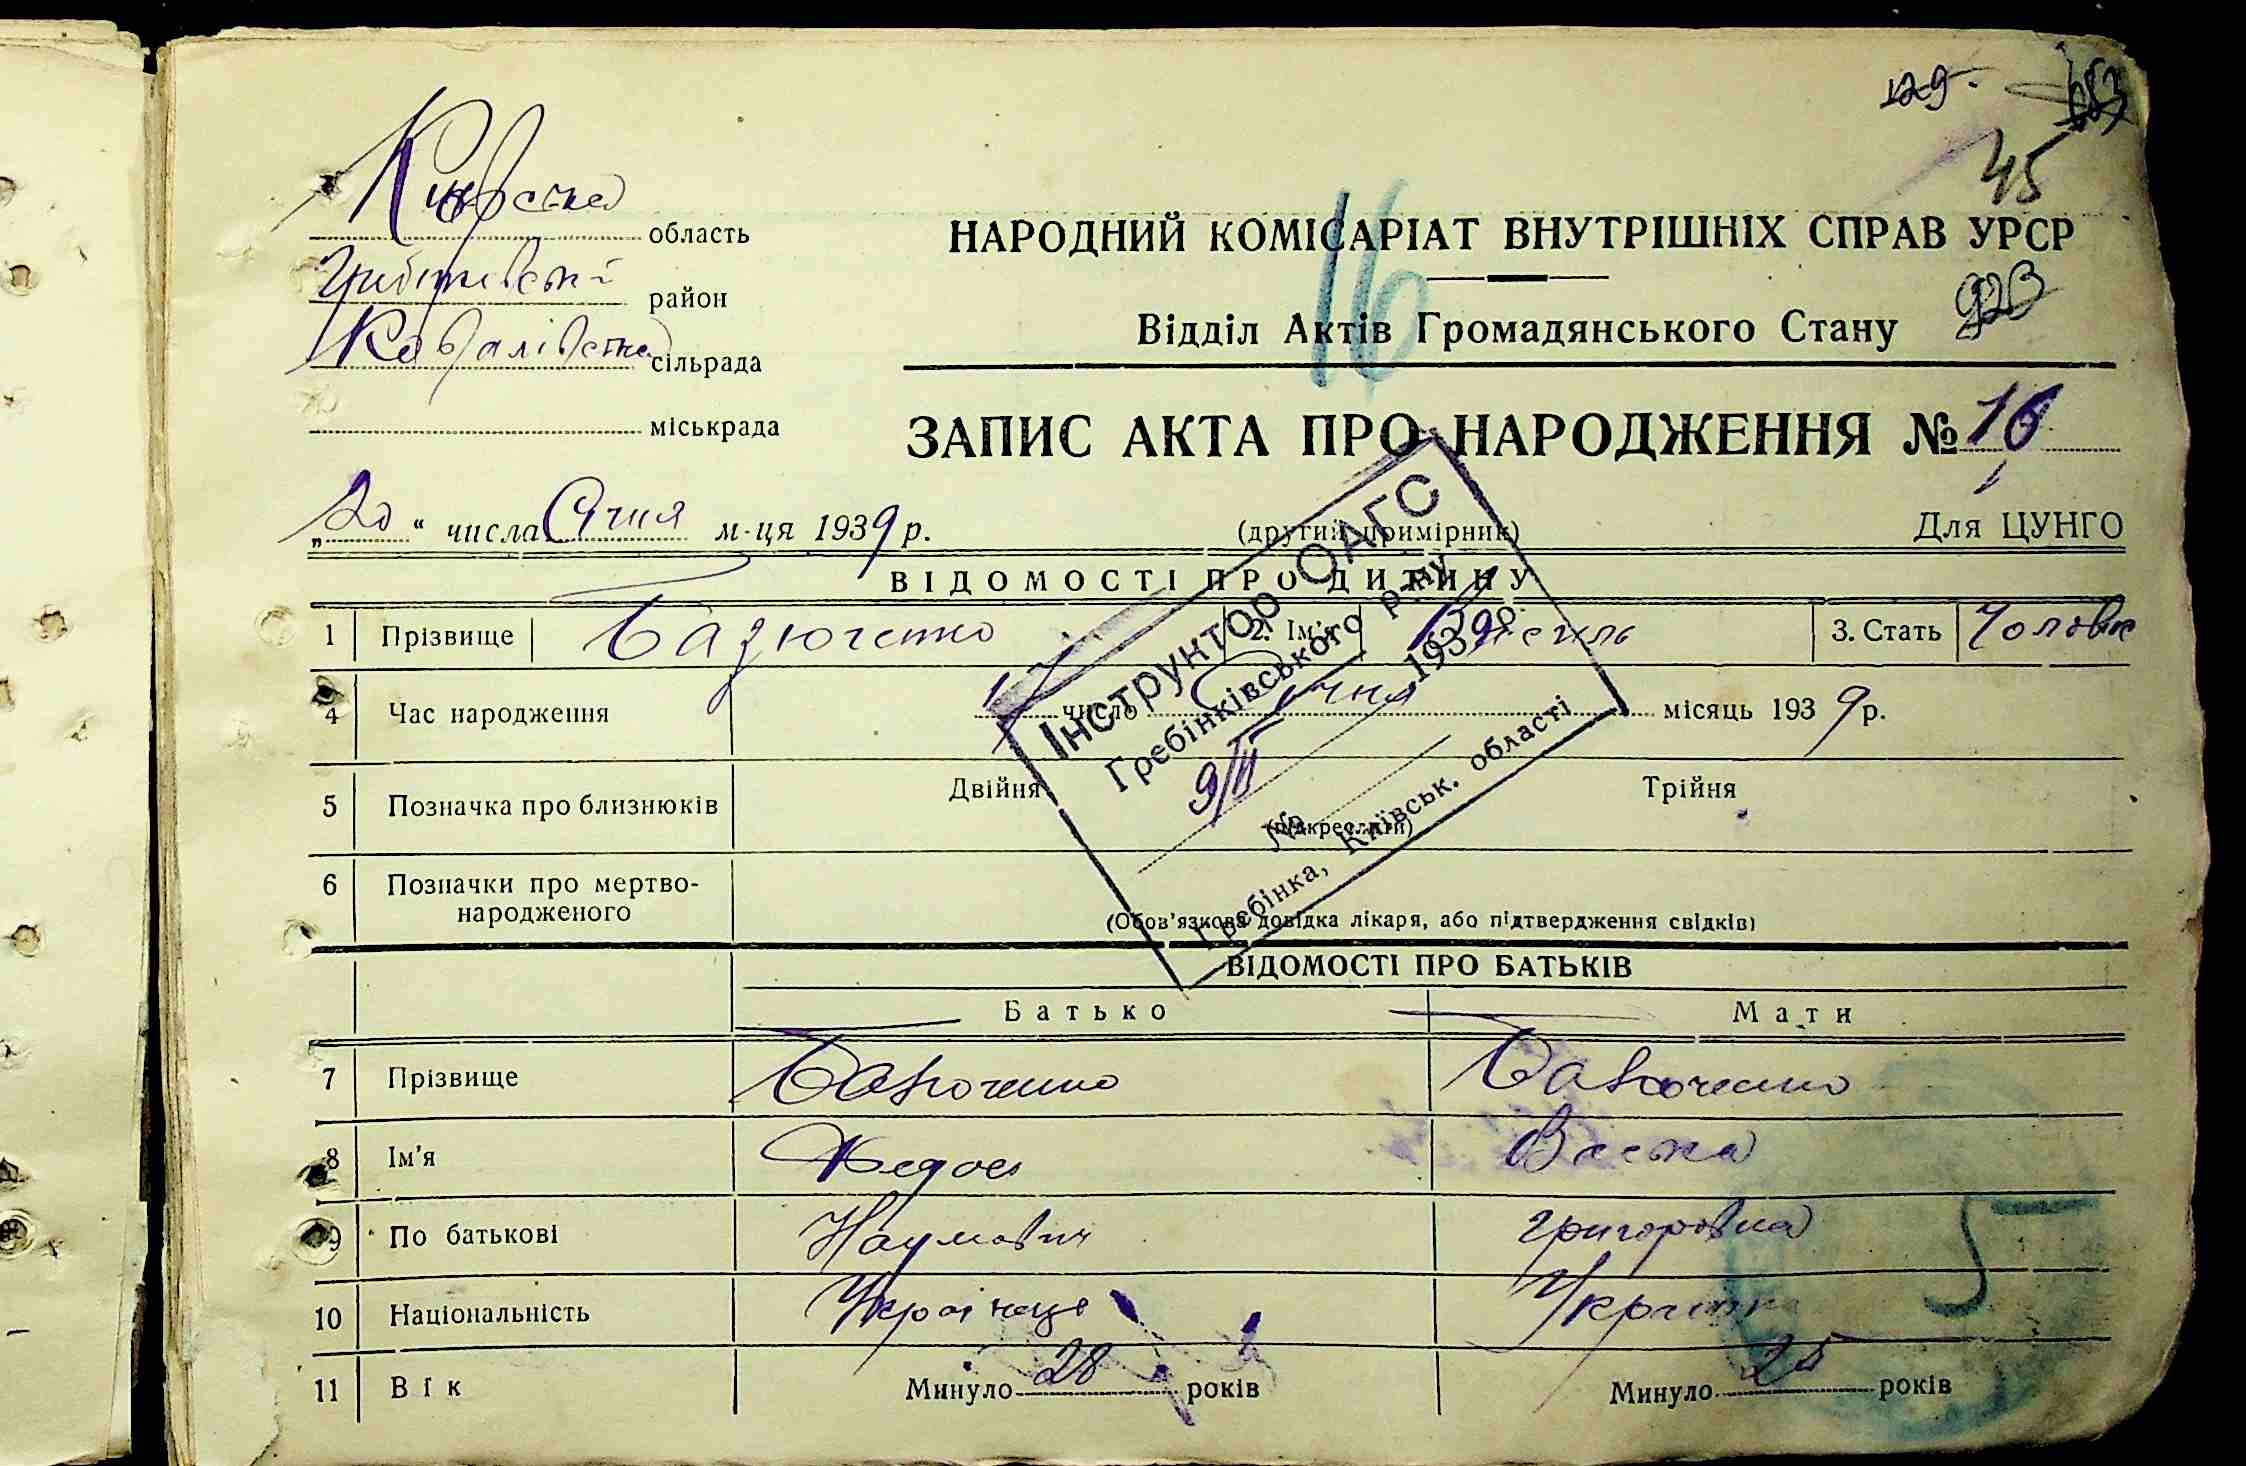 129.
45
Київська область
НАРОДНИЙ КОМІСАРІАТ ВНУТРІШНІХ СПРАВ УРСР
16
Гребінківський район
923
Відділ Актів Громадянського Стану
Ковалівська сільрада
міськрада
ЗАПИС АКТА ПРО НАРОДЖЕННЯ № 16
„20“ числа Січня м-ця 1939 р.
(другий примірник)
Для ЦУНГО
ВІДОМОСТІ ПРО ДИТИНУ
1 Прізвище Базюченко 2. Ім'я Василь 3. Стать Чолові
4 Час народження 17 число Січня місяць 1939 р.
Інструктор ОАГС
Гребінківського р-ну
9/II 193 р.
№
Гребінка, Київськ. області
5 Позначка про близнюків Двійня Трійня
(підкреслити)
6 Позначки про мертво-
народженого
(Обов'язкова довідка лікаря, або підтвердження свідків)
ВІДОМОСТІ ПРО БАТЬКІВ
Батько Мати
7 Прізвище Базюченко Базюченко
8 Ім'я Федось
9 По батькові Наумович Григоровна
5
10 Національність Українець Українка
11 Вік Минуло 28 років Минуло 25 років